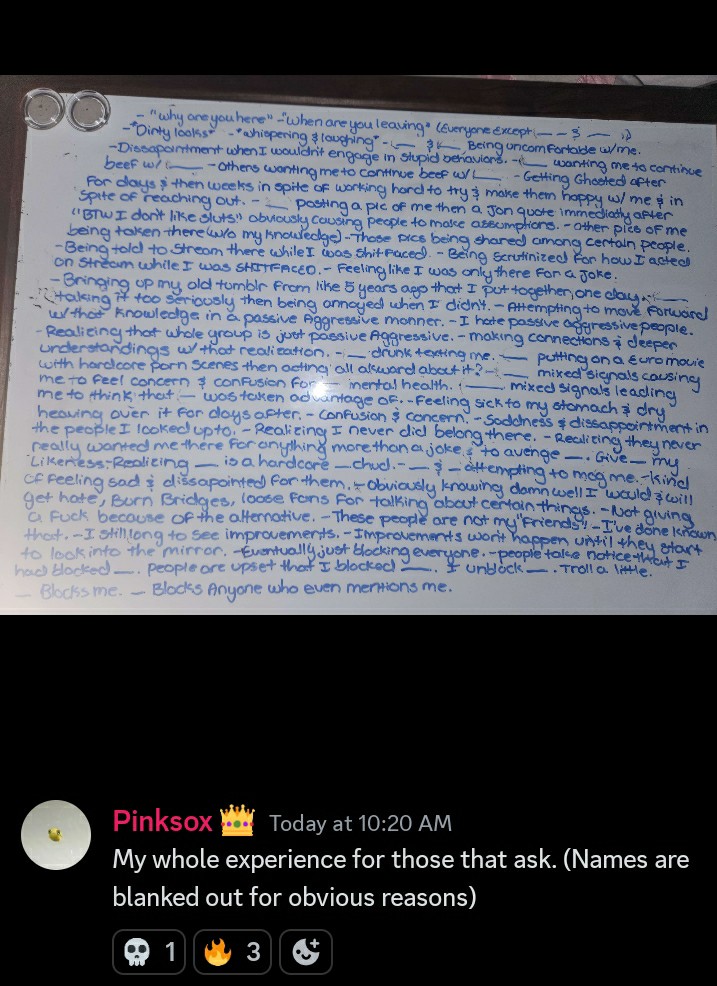 - "Why are you here" - "When are you leaving" (Everyone Except (___ & ___ :))
- "Dirty looks" - "whispering & laughing" - (___ & (___ Being uncomfortable w/me.
- Dissapointment when I wouldn't engage in stupid behaviors. - (___ wanting me to continue
beef w/ (___ - Others wanting me to continue beef w/ (___ - Getting Ghosted after
For days & then weeks in spite of working hard to try & make them happy w/ me & in
Spite of reaching out. - ___ posting a pic of me then a Jon quote immediatly after
"BTW I don't like sluts" obviously causing people to make assumptions. - Other pics of me
being taken there (w/o my knowledge) - Those pics being shared among certain people.
- Being told to Stream there while I was Shit Faced. - Being Scrutinized For how I acted
on Stream while I was SHITFACED. - Feeling like I was only there For a Joke.
- Bringing up my old tumblr From like 5 years ago that I put together, one day. - ___
taking it too Seriously then being annoyed when I didn't. - Attempting to move Forward
w/ that Knowledge in a passive Aggressive manner. - I hate passive aggressive people.
- Realizing that whole group is just passive Aggressive. - making connections & deeper
understandings w/ that realization. - ___ drunk texting me. ___ putting on a Euro movie
with hardcore porn Scenes then acting all akward about it? - ___ mixed signals causing
me to Feel concern & confusion For ___ mental health. (___ mixed signals leading
me to think that ___ was taken advantage of. - Feeling sick to my stomach & dry
heaving over it for days after. - Confusion & concern. - Saddness & dissapointment in
the people I looked up to. - Realizing I never did belong there. - Realizing they never
really wanted me there For anything more than a joke & to avenge ___. Give ___ my
Likeness. - Realizing ___ is a hardcore ___ chud. - ___ & ___ attempting to mog me. - Kind
of Feeling sad & dissapointed for them. - Obviously knowing damn well I would & will
get hate, Burn Bridges, loose fans for talking about certain things. - Not giving
a Fuck because of the alternative. - These people are not my "Friends". - I've done known
that. - I still long to see improvements. - Improvements won't happen until they start
to look into the mirror. - Eventually just blocking everyone. - people take notice that I
had blocked ___. people are upset that I blocked ___. I unblock ___. Troll a little.
___ Blocks me. ___ Blocks Anyone who even mentions me.
Pinksox 👑 Today at 10:20 AM
My whole experience for those that ask. (Names are
blanked out for obvious reasons)
💀 1 🔥 3